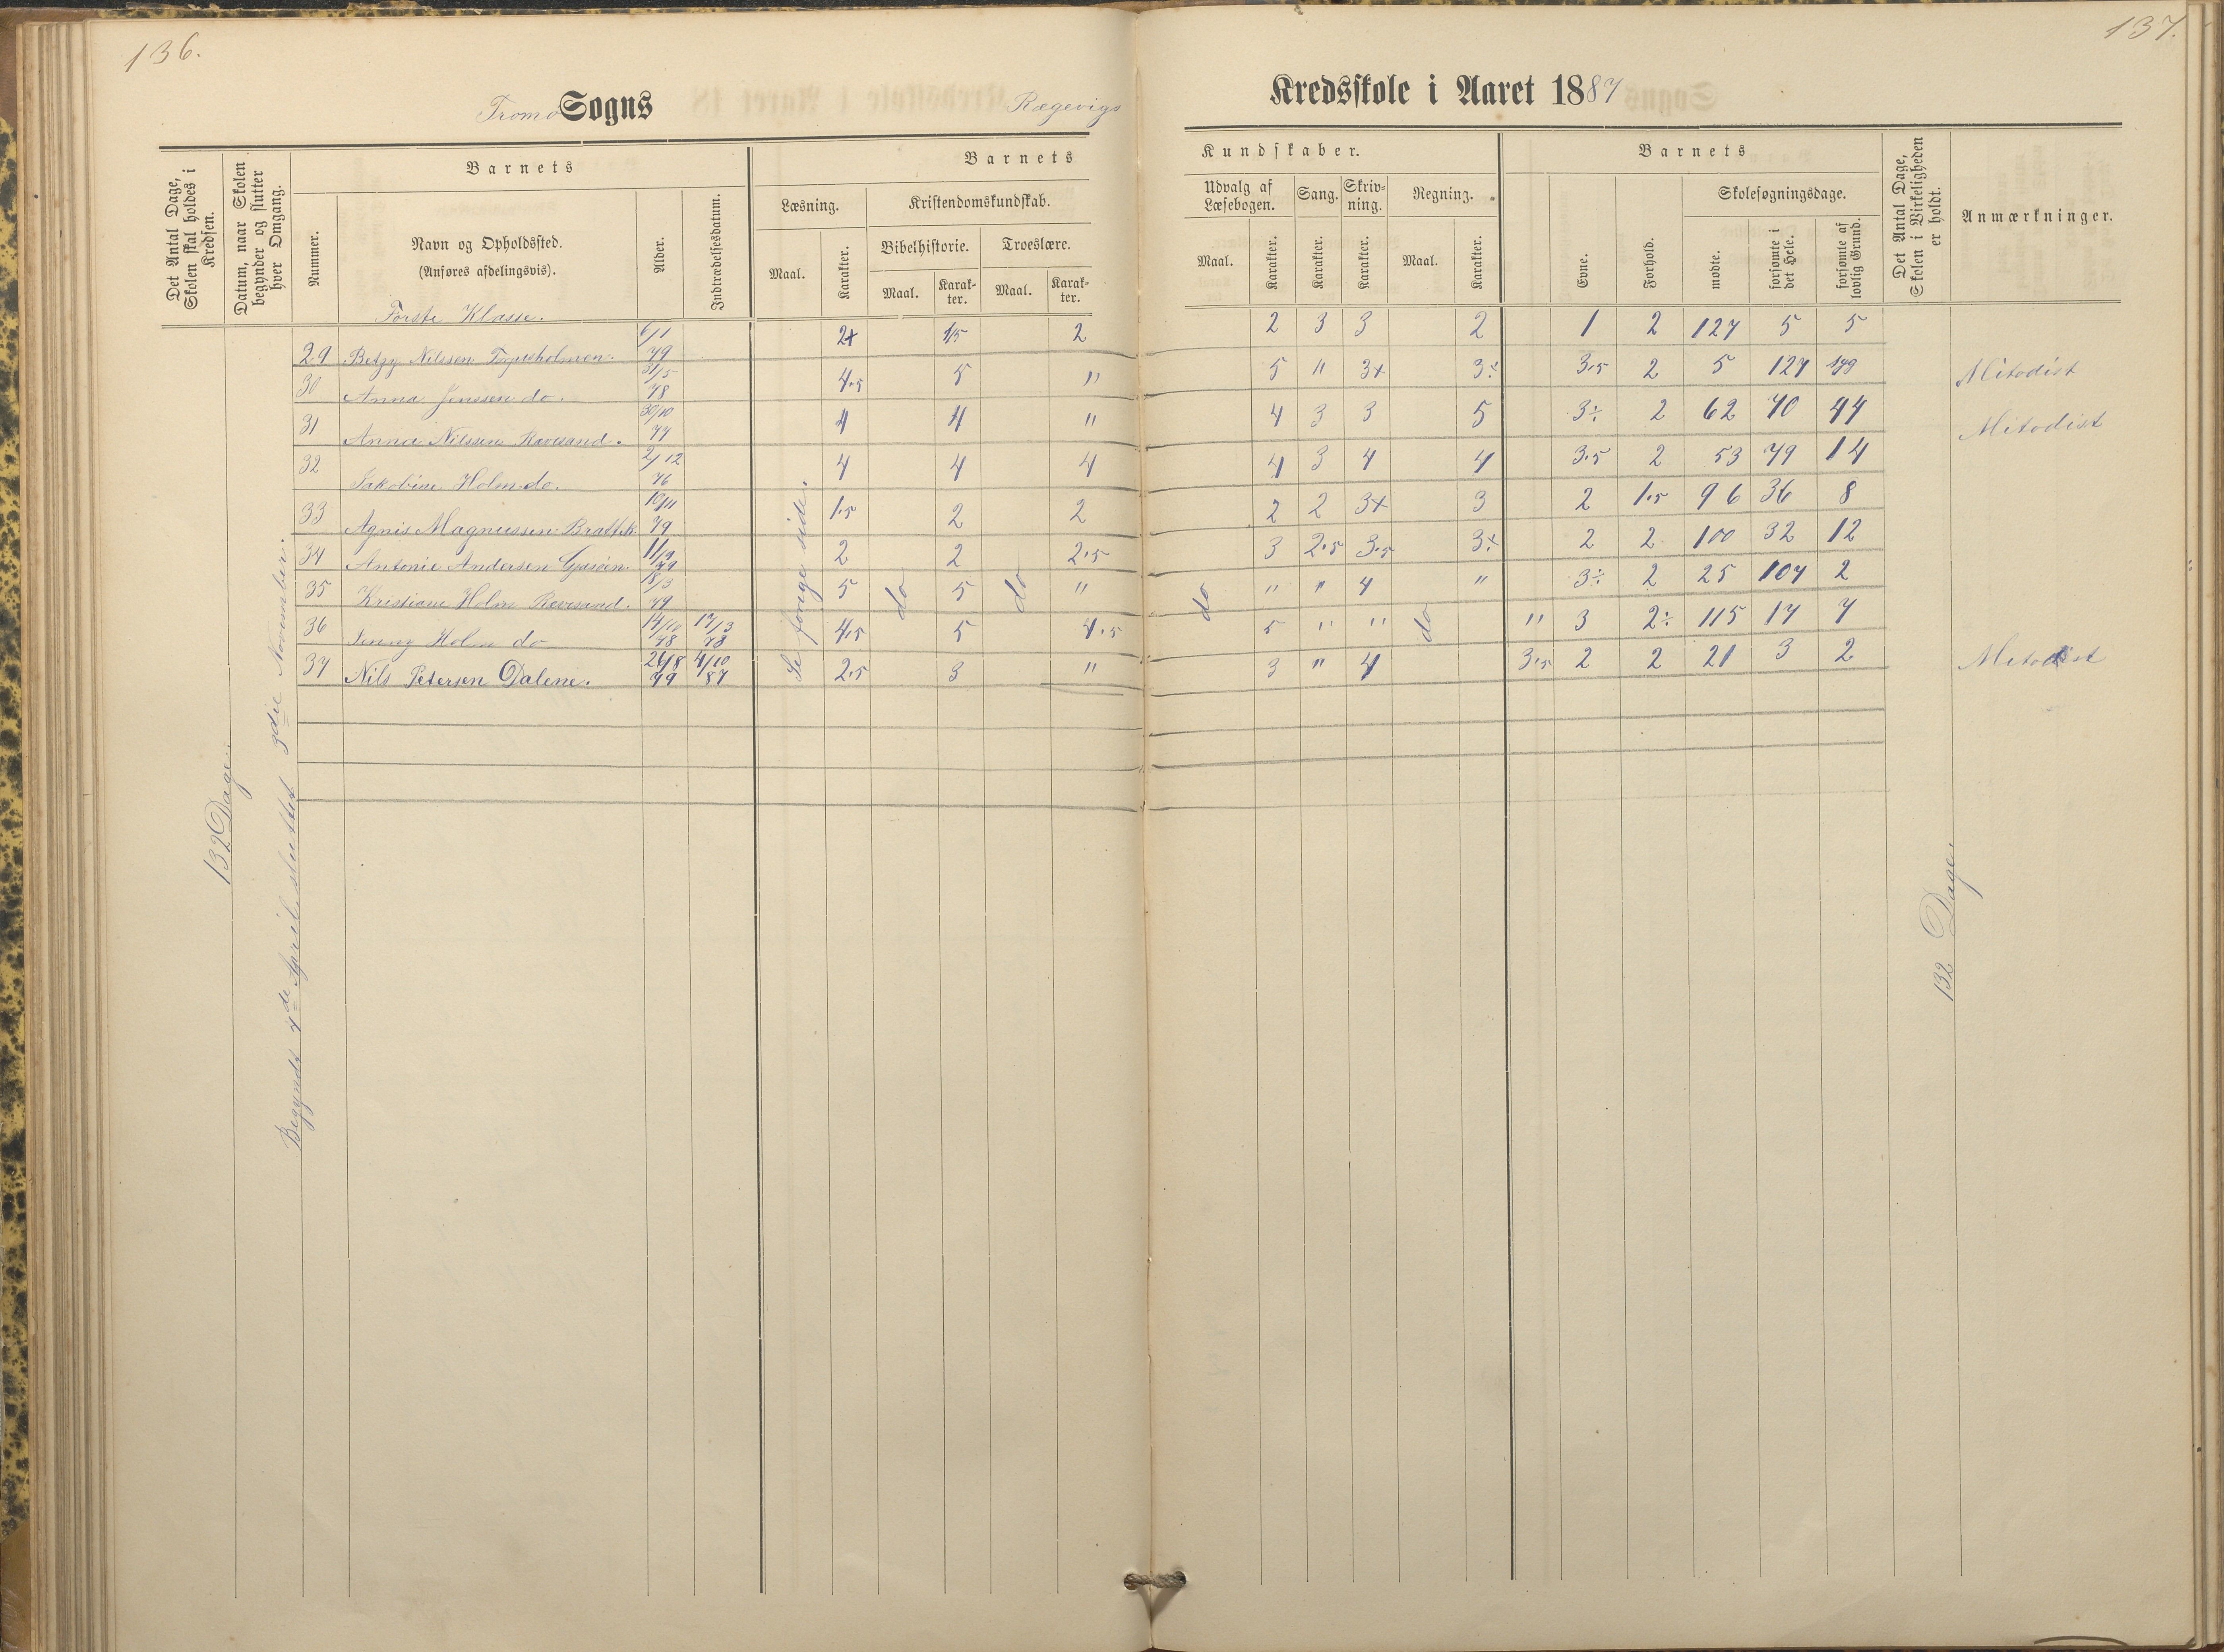 136.
137.
Tromø Sogns
Rægevigs
Kredsskole i Aaret 1887
Det Antal Dage, Skolen skal holdes i Kredsen.
Datum, naar Skolen begynder og slutter hver Omgang.
Barnets
Nummer.
Navn og Opholdssted.
(Anføres afdelingsvis).
Alder.
Indtrædelsesdatum.
Barnets
Læsning.
Maal.
Karakter.
Kristendomskundskab.
Bibelhistorie.
Troeslære.
Maal.
Karakter.
Maal.
Karakter.
Kundskaber.
Udvalg af Læsebogen.
Sang.
Skrivning.
Regning.
Maal.
Karakter.
Karakter.
Karakter.
Maal.
Karakter.
Barnets
Evne.
Forhold.
Skolesøgningsdage.
mødte.
forsømte i det Hele.
forsømte af lovlig Grund.
Det Antal Dage, Skolen i Virkeligheden er holdt.
Anmærkninger.
Første Klasse.
29 Betzy Nilssen 6/1 79 2+ 1.5 2 2 3 3 2 1 2 127 5 5
30 Anna Jenssen do. 31/5 78 4.5 5 " 5 " 3+ 3÷ 3.5 2 5 127 Mitodist
31 Anna Nilssen Ravesand. 30/10 77 4 4 " 4 3 3 5 3÷ 2 62 70 44 Mitodist
32 Jakobine Holm do. 2/12 76 4 4 4 4 3 4 4 3.5 2 53 79 14
33 Agnis Magnussen Bratt 10/11 79 1.5 2 2 2 2 3+ 3 2 1.5 96 36 8
34 Antonie Andersen Gjesøen. 11/9 79 2 2 2.5 3 2.5 3.5 3÷ 2 2 100 32 12
35 Kristiane Holm Ravesand. 18/3 79 5 5 " " " 4 " 3÷ 2 25 107 2
36 Jenny Holm do 14/10 78 17/3 78 4.5 5 4.5 5 " " " 3 2÷ 115 17 7
37 Nils Petersen Dalene. 26/8 79 4/10 87 2.5 3 " 3 " 4 3.5 2 2 21 3 2 Metodist
Se forige side.
do
do
do
do
132 Dage.
Begyndt 4de April sluttet 3die November.
132 Dage.